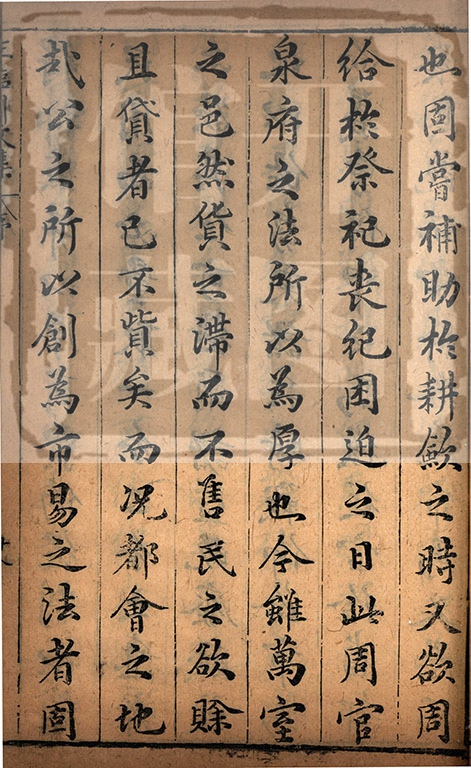 也固嘗補助於耕歛之時又欲周
給於祭祀喪紀困迫之日此周官
泉府之法所以為厚也今雖萬室
之邑然貨之滯而不售民之欲賒
且貸者已不貲矣而况都會之地
哉公之所以創為市易之法者固